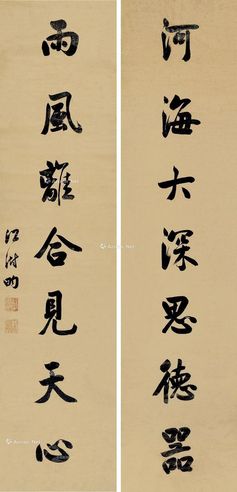 河海大深思德器
雨風離合見天心
江澍畇